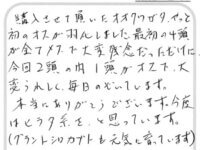 購入させて頂いたオオクワガタ、やっと
初のオスが羽化しました。最初の4頭
が全てメスで大変残念だっただけに
今回2頭の内1頭がオスで、大
変うれしく、毎日のぞいています。
本当にありがとうございます。今度
はヒラタ系を、と思っています。
(グラントシロカブトも元気に育っています)